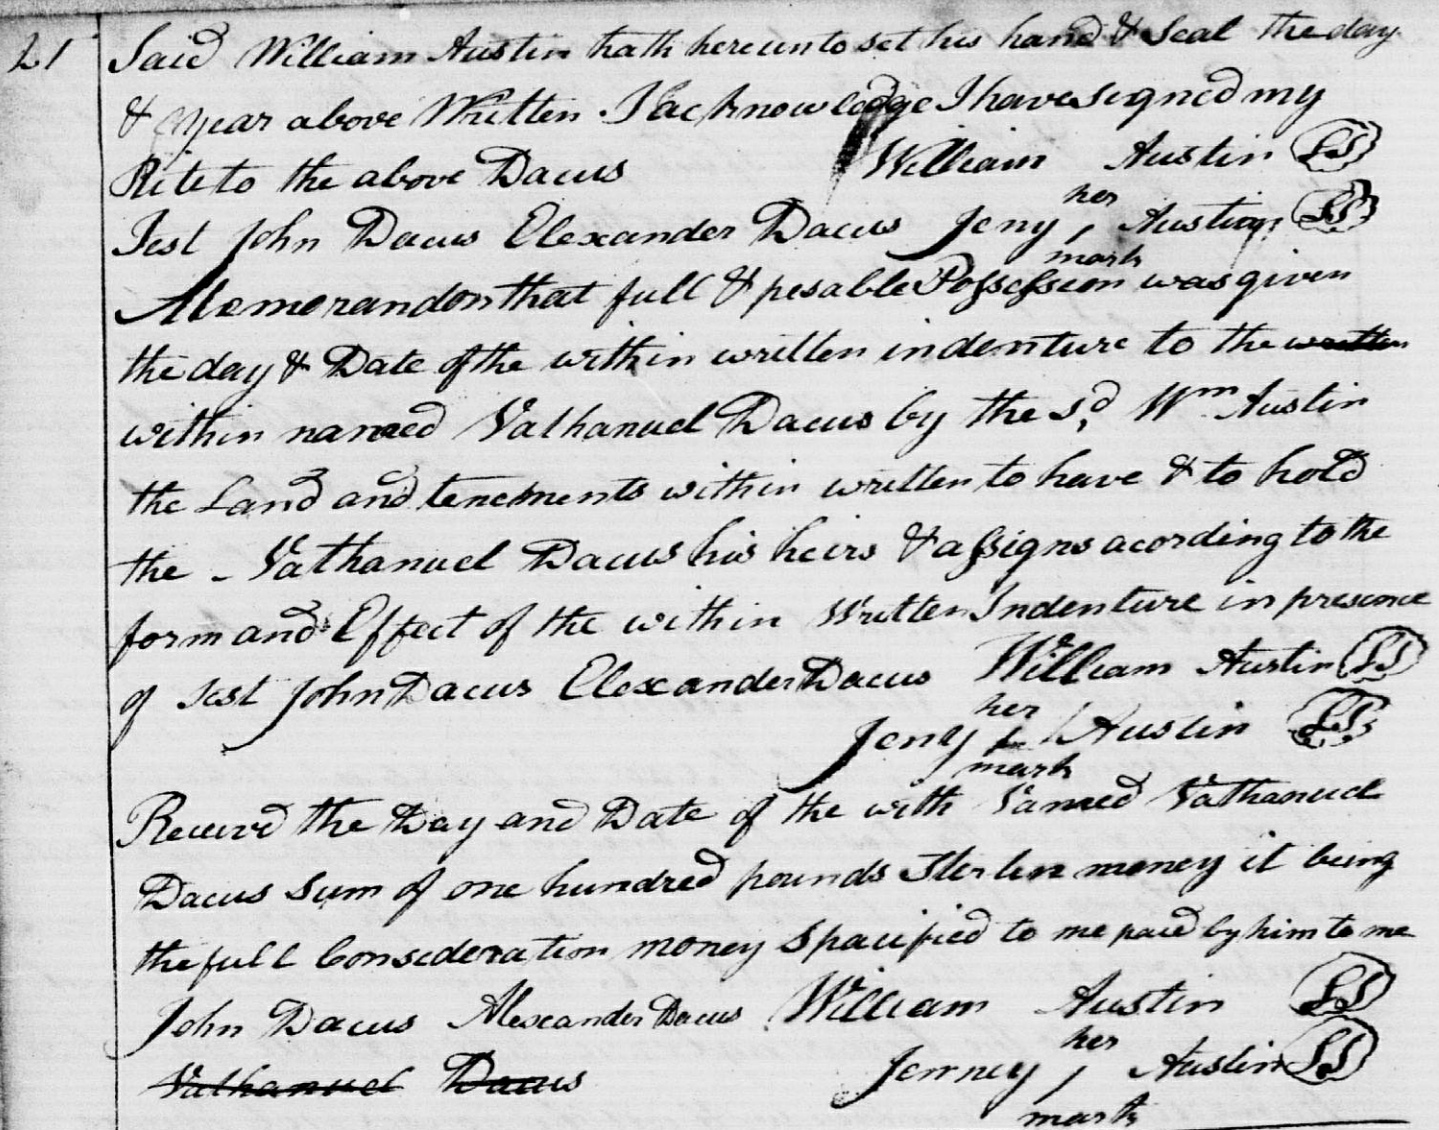 21 Said William Austin hath hereunto set his hand & Seal the day
& year above Written I acknowledge I have signed my
Rite to the above Dacus William Austin LS
Test John Dacus Elexander Dacus Jeny her mark Austin LS
Memorandon that full & pesable Possession was given
the day & Date of the within written indenture to the written
within named Nathanuel Dacus by the sd Wm Austin
the Land and tenements within written to have & to hold
the Nathanuel Dacus his heirs & assigns acording to the
form and Effect of the within Written Indenture in presence
of Test John Dacus Elexander Dacus William Austin LS
Jeny her mark Austin LS
Receivd the Day and Date of the with Named Nathanuel
Dacus sum of one hundred pounds Sterlin money it being
the full Consideration money Spacified to me paid by him to me
John Dacus Alexander Dacus William Austin LS
Nathanuel Dacus Jenney her mark Austin LS